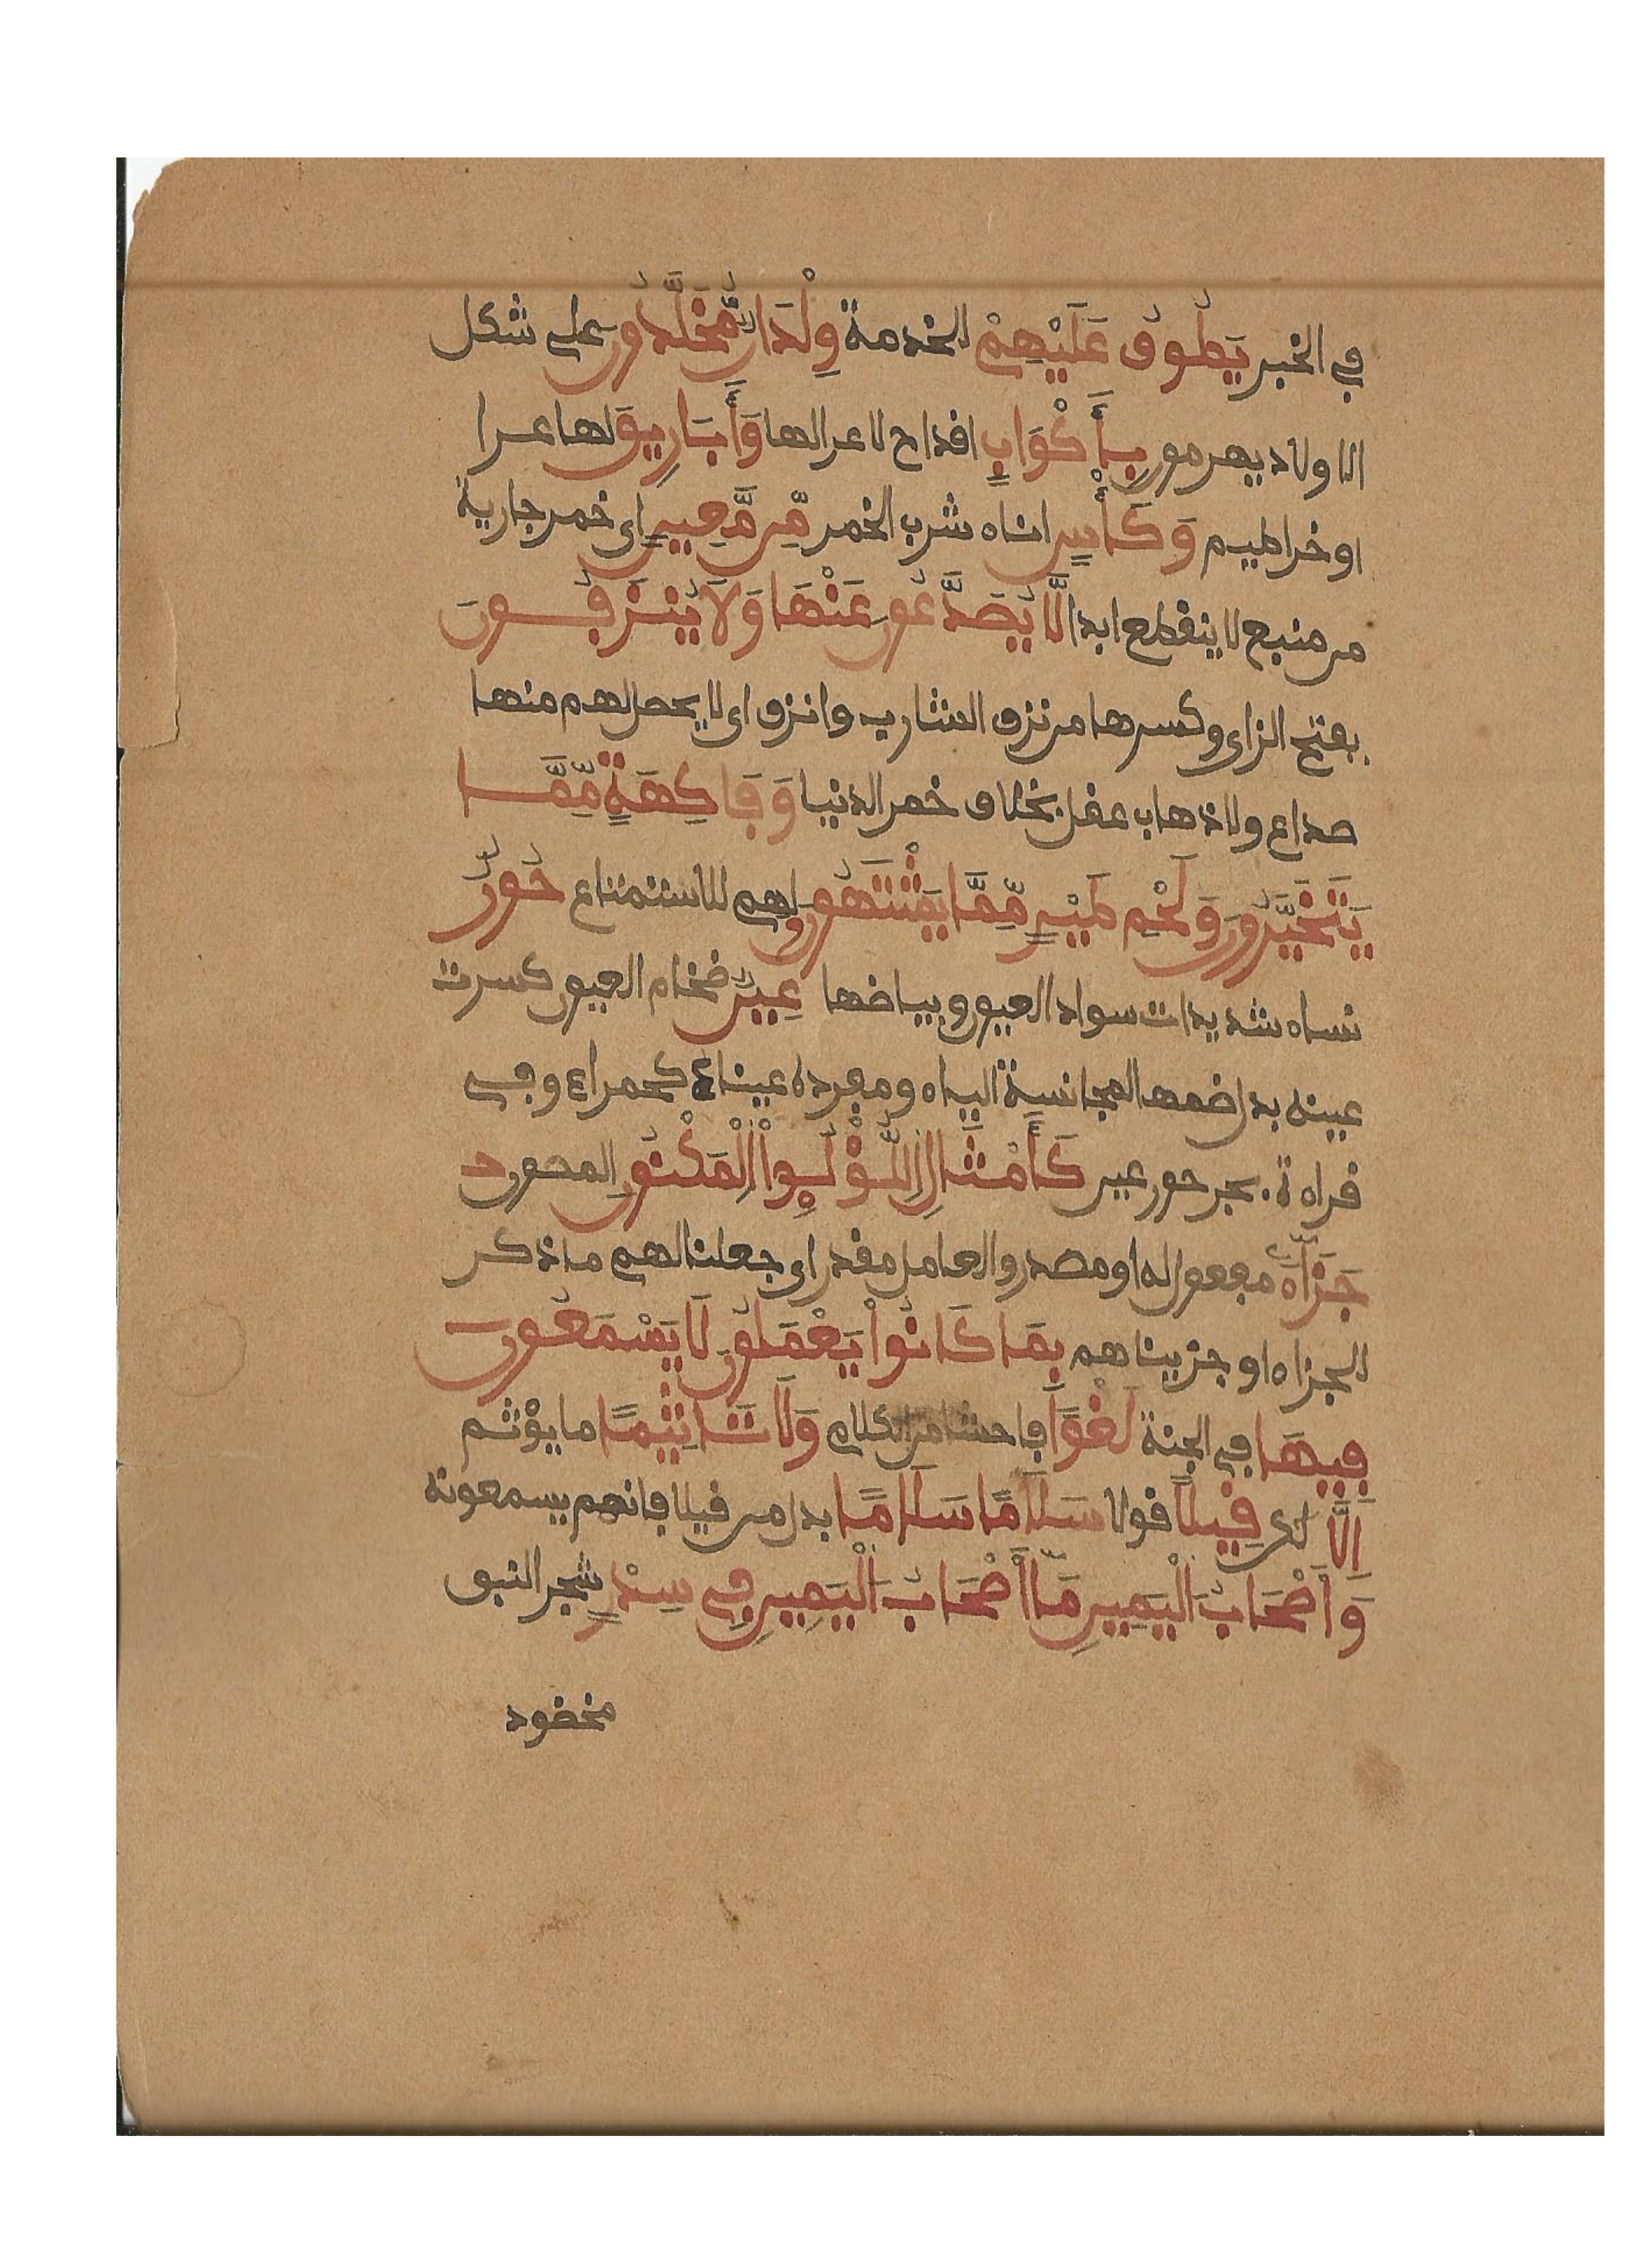 في الخبر يَطُوفُ عَلَيْهِمْ للخدمة وِلْدَانٌ مُّخَلَّدُونَ على شكل
الاولاد لا يهرمون بِأَكْوَابٍ اقداح لا عرا لها وَأَبَارِيقَ لها عرا
او خراطيم وَكَأْسٍ اناء شرب الخمر مِّن مَّعِينٍ اى خمر جارية
من منبع لا ينقطع ابدا لَّا يُصَدَّعُونَ عَنْهَا وَلَا يُنزَفُونَ
بفتح الزاى وكسرها من نزف الشارب وانزف اى لا يحصل لهم منها
صداع ولا ذهاب عقل بخلاف خمر الدنيا وَفَاكِهَةٍ مِّمَّا
يَتَخَيَّرُونَ وَلَحْمِ طَيْرٍ مِّمَّا يَشْتَهُونَ ولهم للاستمتاع حُورٌ
نساء شديدات سواد العيون وبياضها عِينٌ ضخام العيون كسرت
عينه بدل ضمها لمجانسة الياء ومفرده عيناء كحمراء وفي
قراءة بجر حور عين كَأَمْثَالِ اللُّؤْلُوِٕا۟ الْمَكْنُونِ المصون
جَزَآءً مفعول له او مصدر والعامل مقدر اى جعلنا لهم ما ذكر
للجزاء او جزيناهم بِمَا كَانُوا۟ يَعْمَلُونَ لَا يَسْمَعُونَ
فِيهَا في الجنة لَغْوًا فاحشا من الكلام وَلَا تَاثِيْمًا ما يؤثم
اِلَّا لكن قِيلًا قولا سَلَامًا سَلَامًا بدل من قيلا فانهم يسمعونه
وَأَصْحَابُ الْيَمِينِ مَآ أَصْحَابُ الْيَمِينِ فِي سِدْرٍ شجر النبق
مخضود